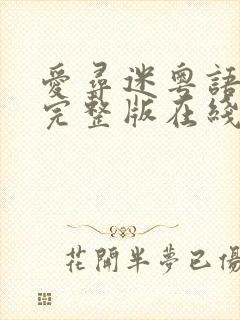 愛尋迷粵語
完整版在綫
花開半夢已傷